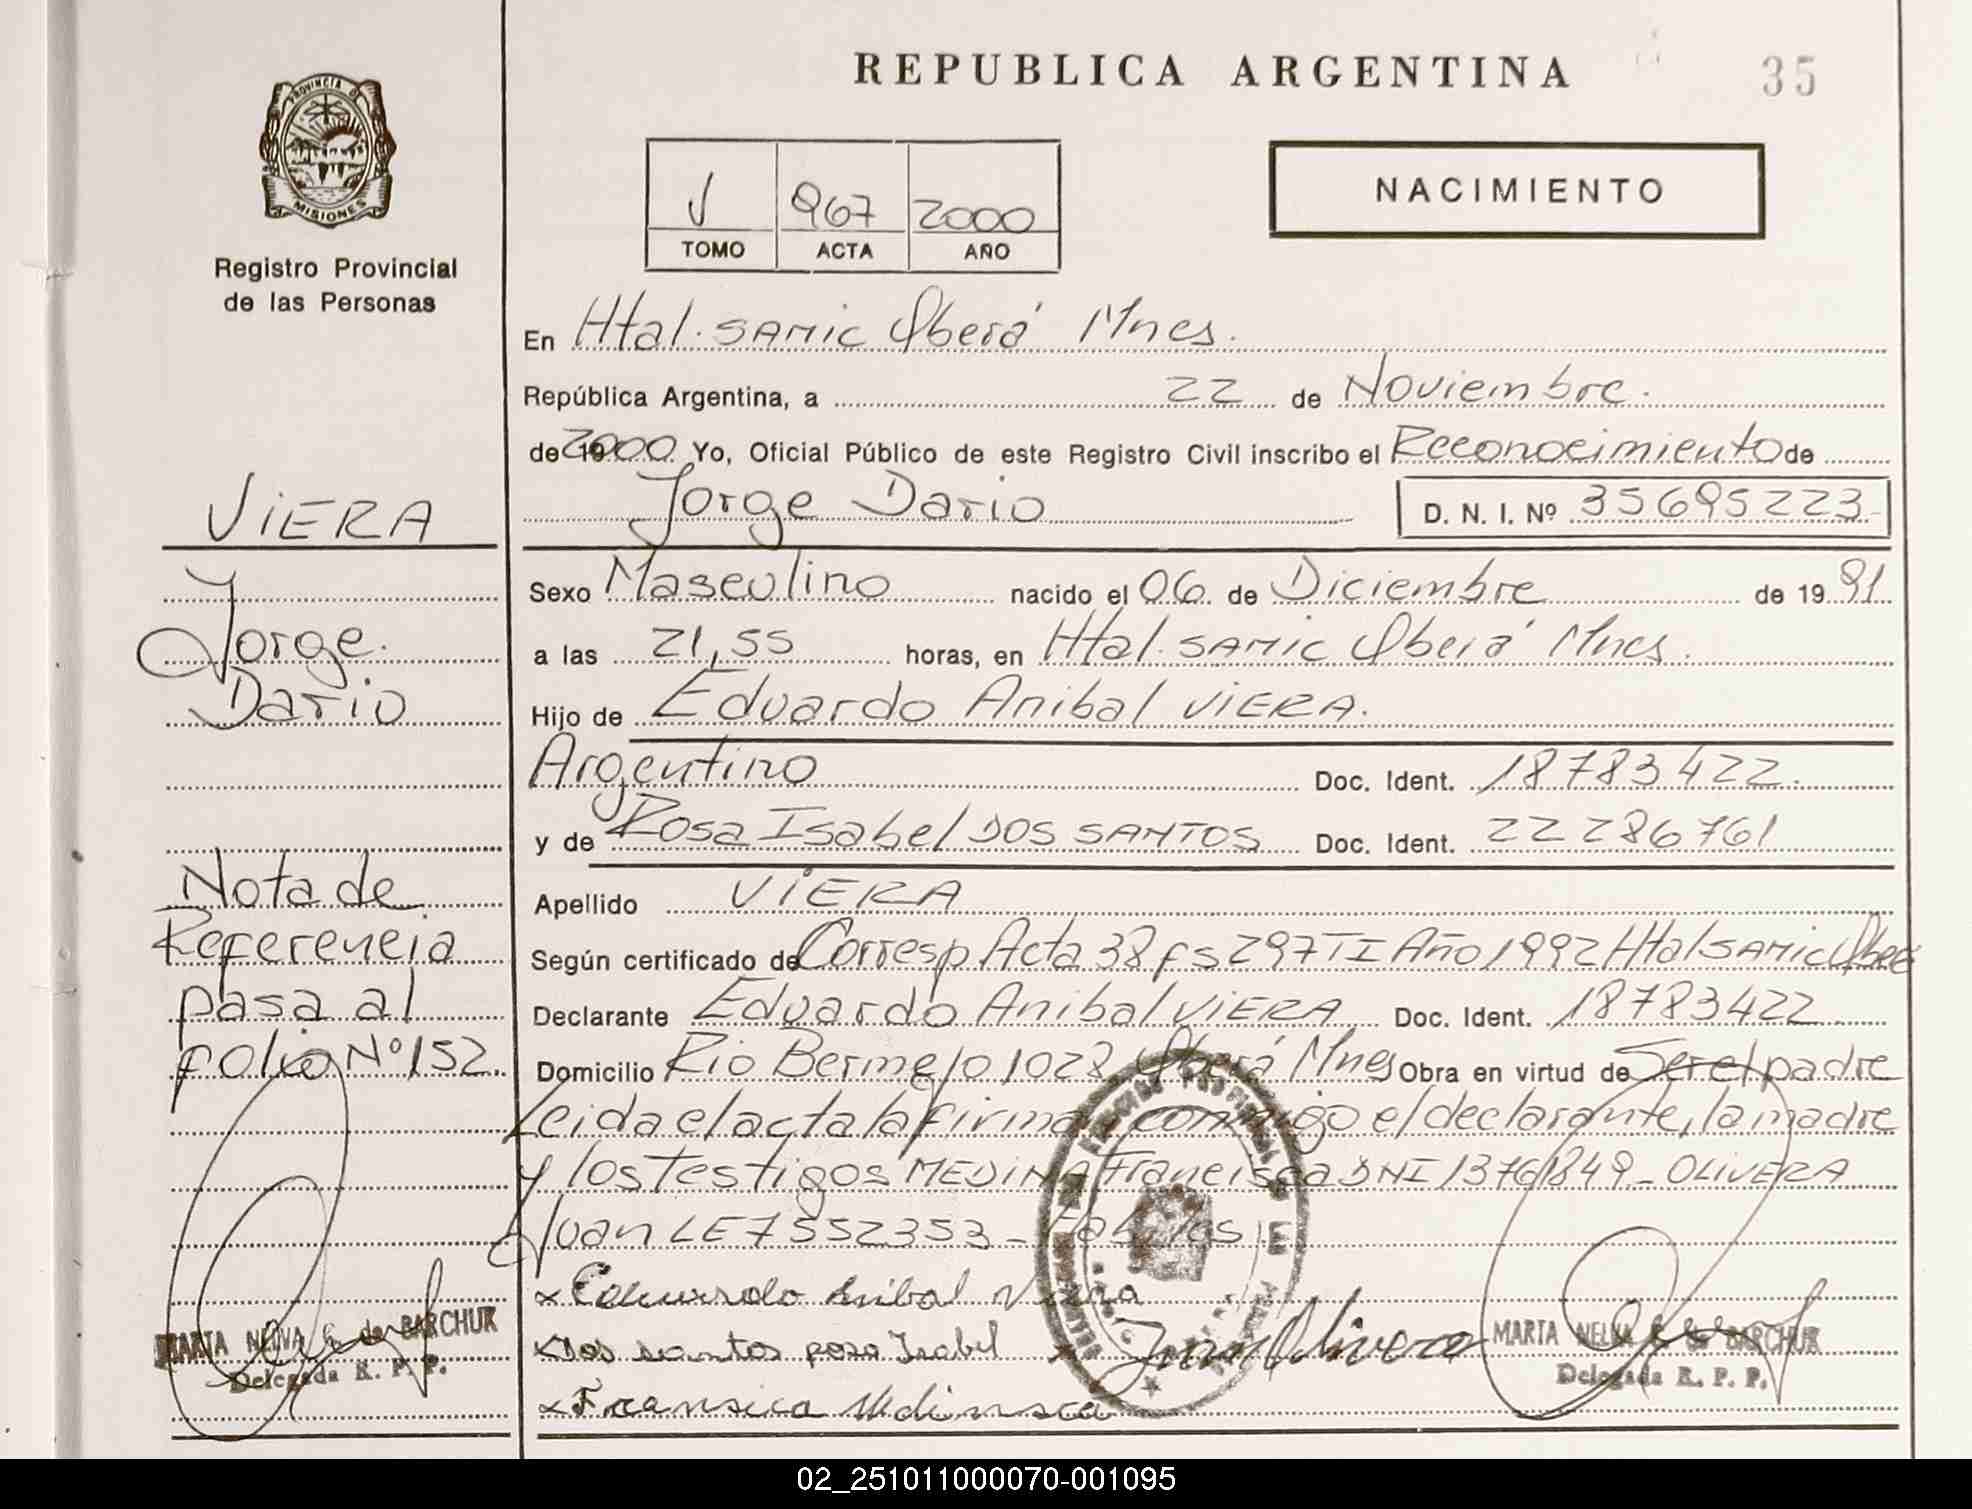 REPUBLICA ARGENTINA
35
PROVINCIA DE
MISIONES
Registro Provincial
de las Personas
V 967 2000
TOMO ACTA AÑO
NACIMIENTO
En Htal. SAMIC Oberá Mnes.
República Argentina, a 22 de Noviembre.
de 2000 Yo, Oficial Público de este Registro Civil inscribo el Reconocimiento de
Jorge Dario D. N. I. Nº 35695223
Sexo Masculino nacido el 06 de Diciembre de 19 91
a las 21,55 horas, en Htal. SAMIC Oberá Mnes.
Hijo de Eduardo Anibal VIERA.
Argentino Doc. Ident. 18783422.
y de Rosa Isabel DOS SANTOS Doc. Ident. 22286761
Apellido VIERA
Según certificado de Corresp Acta 38 fs 297 T I Año 1992 Htal SAMIC Oberá
Declarante Eduardo Anibal VIERA Doc. Ident. 18783422
Domicilio Rio Bermejo 1028 Oberá Mnes Obra en virtud de Ser el padre
Leida el acta la firman conmigo el declarante, la madre
y los Testigos MEDINA Francisca DNI 13761849 - OLIVERA
Juan LE 7552353 -
x Eduardo Anibal Viera
x Dos santos rosa Isabel x Juan Olivera
x Fransica
MARTA NELVA de BARCHUK
Delegada R. P. P.
VIERA
Jorge
Dario
Nota de
Referencia
pasa al
folio Nº 152.
MARTA NELVA de BARCHUK
Delegada R. P. P.
02_251011000070-001095